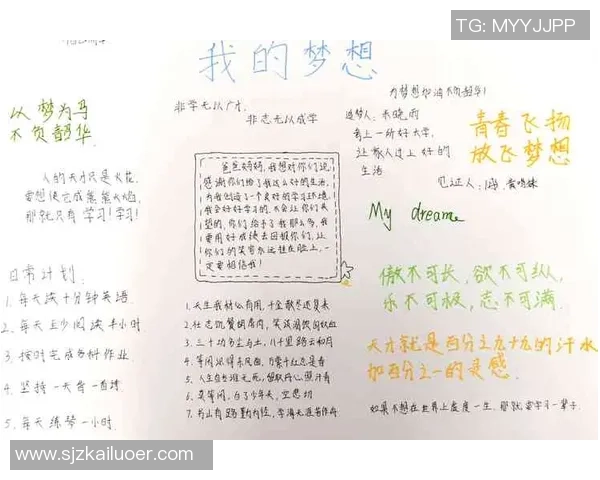 TG: MYYJJPP
我的梦想
以梦为马
不负韶华
人的天才只是火花,
要想使它成熊熊火焰,
那就只有学习!学习!
日常计划
1.每天读十分钟英语.
2.每天至少阅读半小时
3.按时完成各科作业
4.坚持一天背一首诗
5.每天练琴一小时.
非学无以广才,
非志无以成学
爸爸妈妈,我想对你们说,
感谢你们给了我这么好的生活,
为我创造了一个良好的学习环境.
我会好好学习的,不会让你们失
望的,你们给予了我那么多,我
要用好成绩去回报你们,让
你们的笑容永远挂在脸上,一
定要相信我!
1.天生我材必有用,千金散尽还复来
2.壮志饥餐胡虏肉,笑谈渴饮匈奴血
3.三十功名尘与土,八千里路云和月
4.等闲识得东风面,万紫千红总是春
5.人生自古谁无死,留取丹心照汗青
6.莫等闲,白了少年头,空悲切
7.书山有路勤为径,学海无涯苦作舟
为梦想加油不负韶华!
追梦人:
考上一所好大学,
让家人过上好的
生活
见证人:
青春飞扬
放飞梦想
My dream
傲不可长,欲不可纵,
乐不可极,志不可满.
天才就是百分之九十九的汗水
加百分之一的灵感.
如果不想在世界上虚度一生,那就要学习一辈子.
www.sjzkailuoer.com